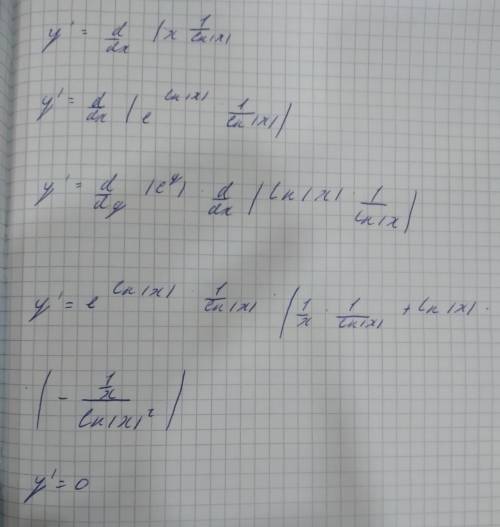 y' = d/dx (x^(1/ln(x))
y' = d/dx (e^(ln(x) 1/ln(x)))
y' = d/dg (e^g) · d/dx (ln(x) · 1/ln(x))
y' = e^(ln(x) · 1/ln(x)) · (1/x · 1/ln(x) + ln(x) ·
· (- (1/x)/ln(x)²)
y' = 0